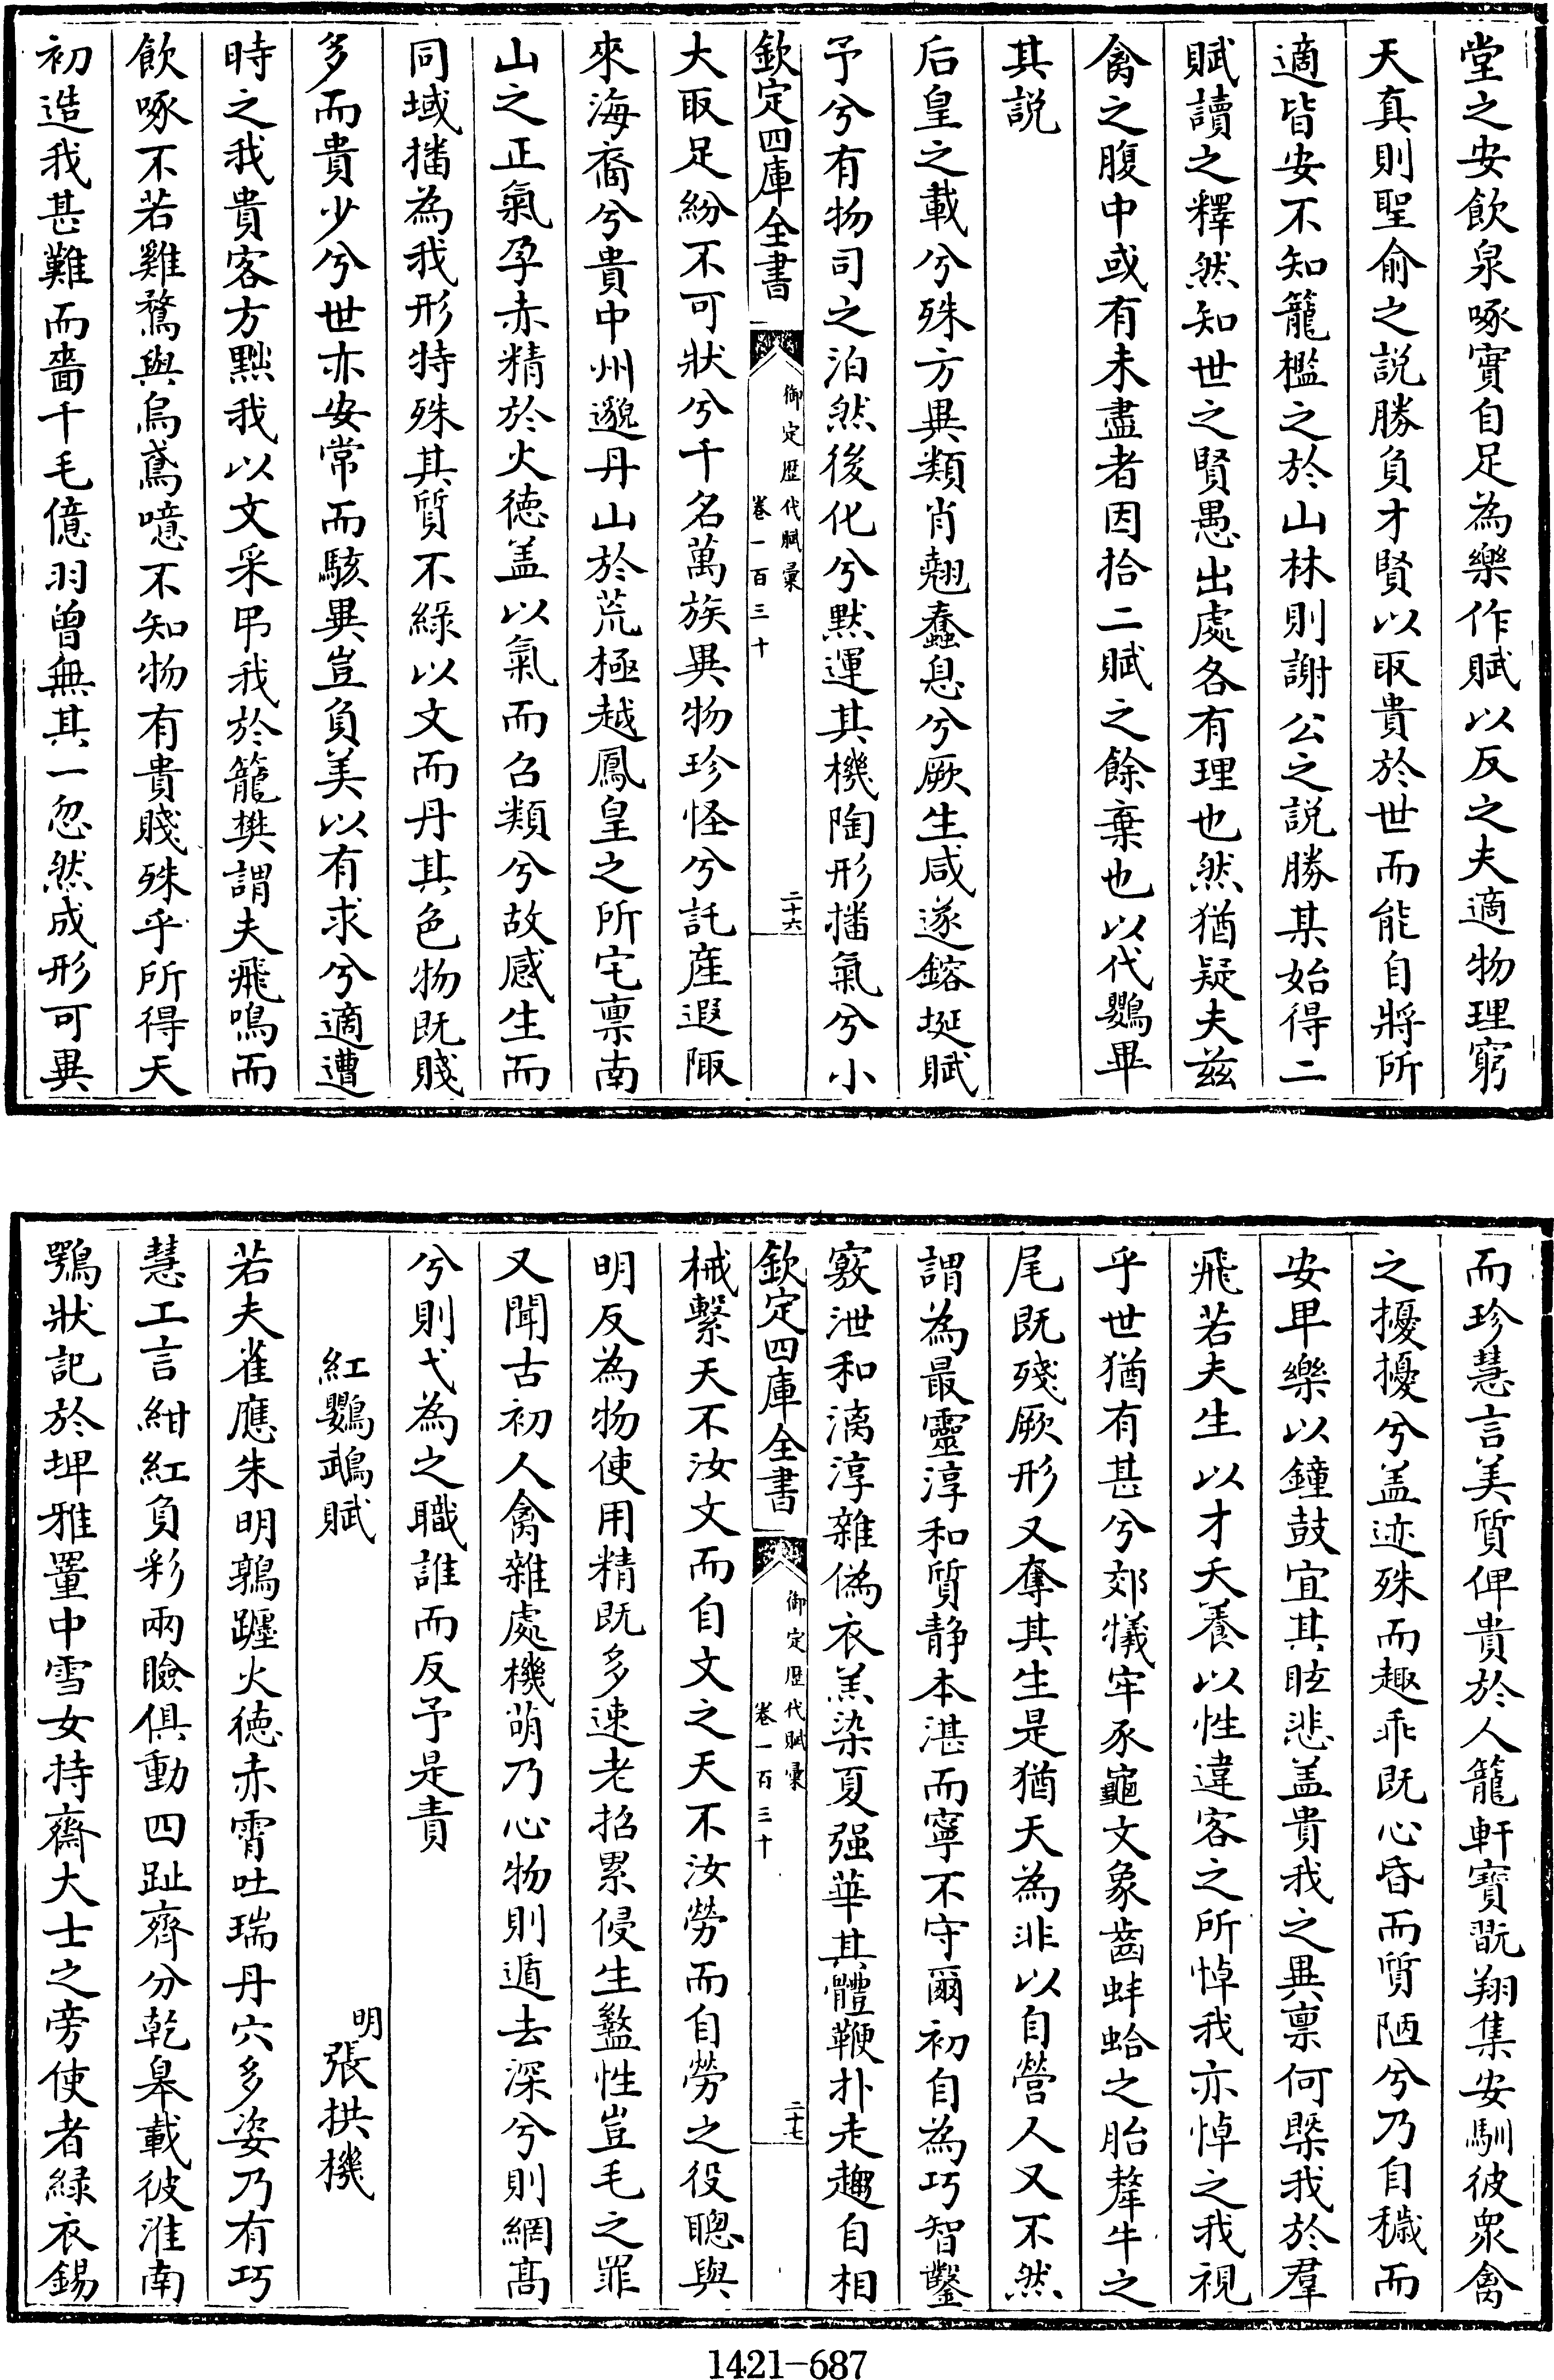 堂之安飲泉啄實自足為樂作賦以反之夫適物理窮
天真則聖俞之説勝負才賢以取貴於世而能自將所
適皆安不知籠檻之於山林則謝公之説勝某始得二
賦讀之釋然知世之賢愚出處各有理也然猶疑夫兹
禽之腹中或有未盡者因拾二賦之餘棄也以代鸚畢
其説
后皇之載兮殊方異類肖翹蠢息兮厥生咸遂鎔埏賦
予兮有物司之泊然後化兮默運其機陶形播氣兮小
欽定四庫全書
御定歴代賦彙
卷一百三十
二十六
大取足紛不可狀兮千名萬族異物珍怪兮託產遐陬
來海裔兮貴中州邈丹山於荒極越鳳皇之所宅稟南
山之正氣孕赤精於火德盖以氣而召類兮故感生而
同域播為我形特殊其質不綠以文而丹其色物既賤
多而貴少兮世亦安常而駭異豈負美以有求兮適遭
時之我貴客方黠我以文采弔我於籠樊謂夫飛鳴而
飲啄不若雞鶩與烏鳶噫不知物有貴賤殊乎所得天
初造我甚難而嗇千毛億羽曾無其一忽然成形可異
而珍慧言美質俾貴於人籠軒寶翫翔集安馴彼衆禽
之擾擾兮盖迹殊而趣乖既心昏而質陋兮乃自穢而
安卑樂以鐘鼓宜其眩悲盖貴我之異稟何槩我於羣
飛若夫生以才夭養以性違客之所悼我亦悼之我視
乎世猶有甚兮郊犧牢豕龜文象齒蚌蛤之胎犛牛之
尾既殘厥形又奪其生是猶天為非以自營人又不然
謂為最靈淳和質静本湛而寧不守爾初自為巧智鑿
竅泄和漓淳雜偽衣羔染夏强華其體鞭扑走趨自相
欽定四庫全書
御定歴代賦彙
卷一百三十
二十七
械繫天不汝文而自文之天不汝勞而自勞之役聰與
明反為物使用精既多速老招累侵生盭性豈毛之罪
又聞古初人禽雜處機萌乃心物則遁去深兮則網高
兮則弋為之職誰而反予是責
紅鸚鵡賦
明張拱機
若夫雀應朱明鶉躔火德赤霄吐瑞丹穴多姿乃有巧
慧工言紺紅負彩兩瞼俱動四趾齊分乾皋載彼淮南
鶚狀記於埤雅罿中雪女持齋大士之旁使者緑衣錫
1421-687